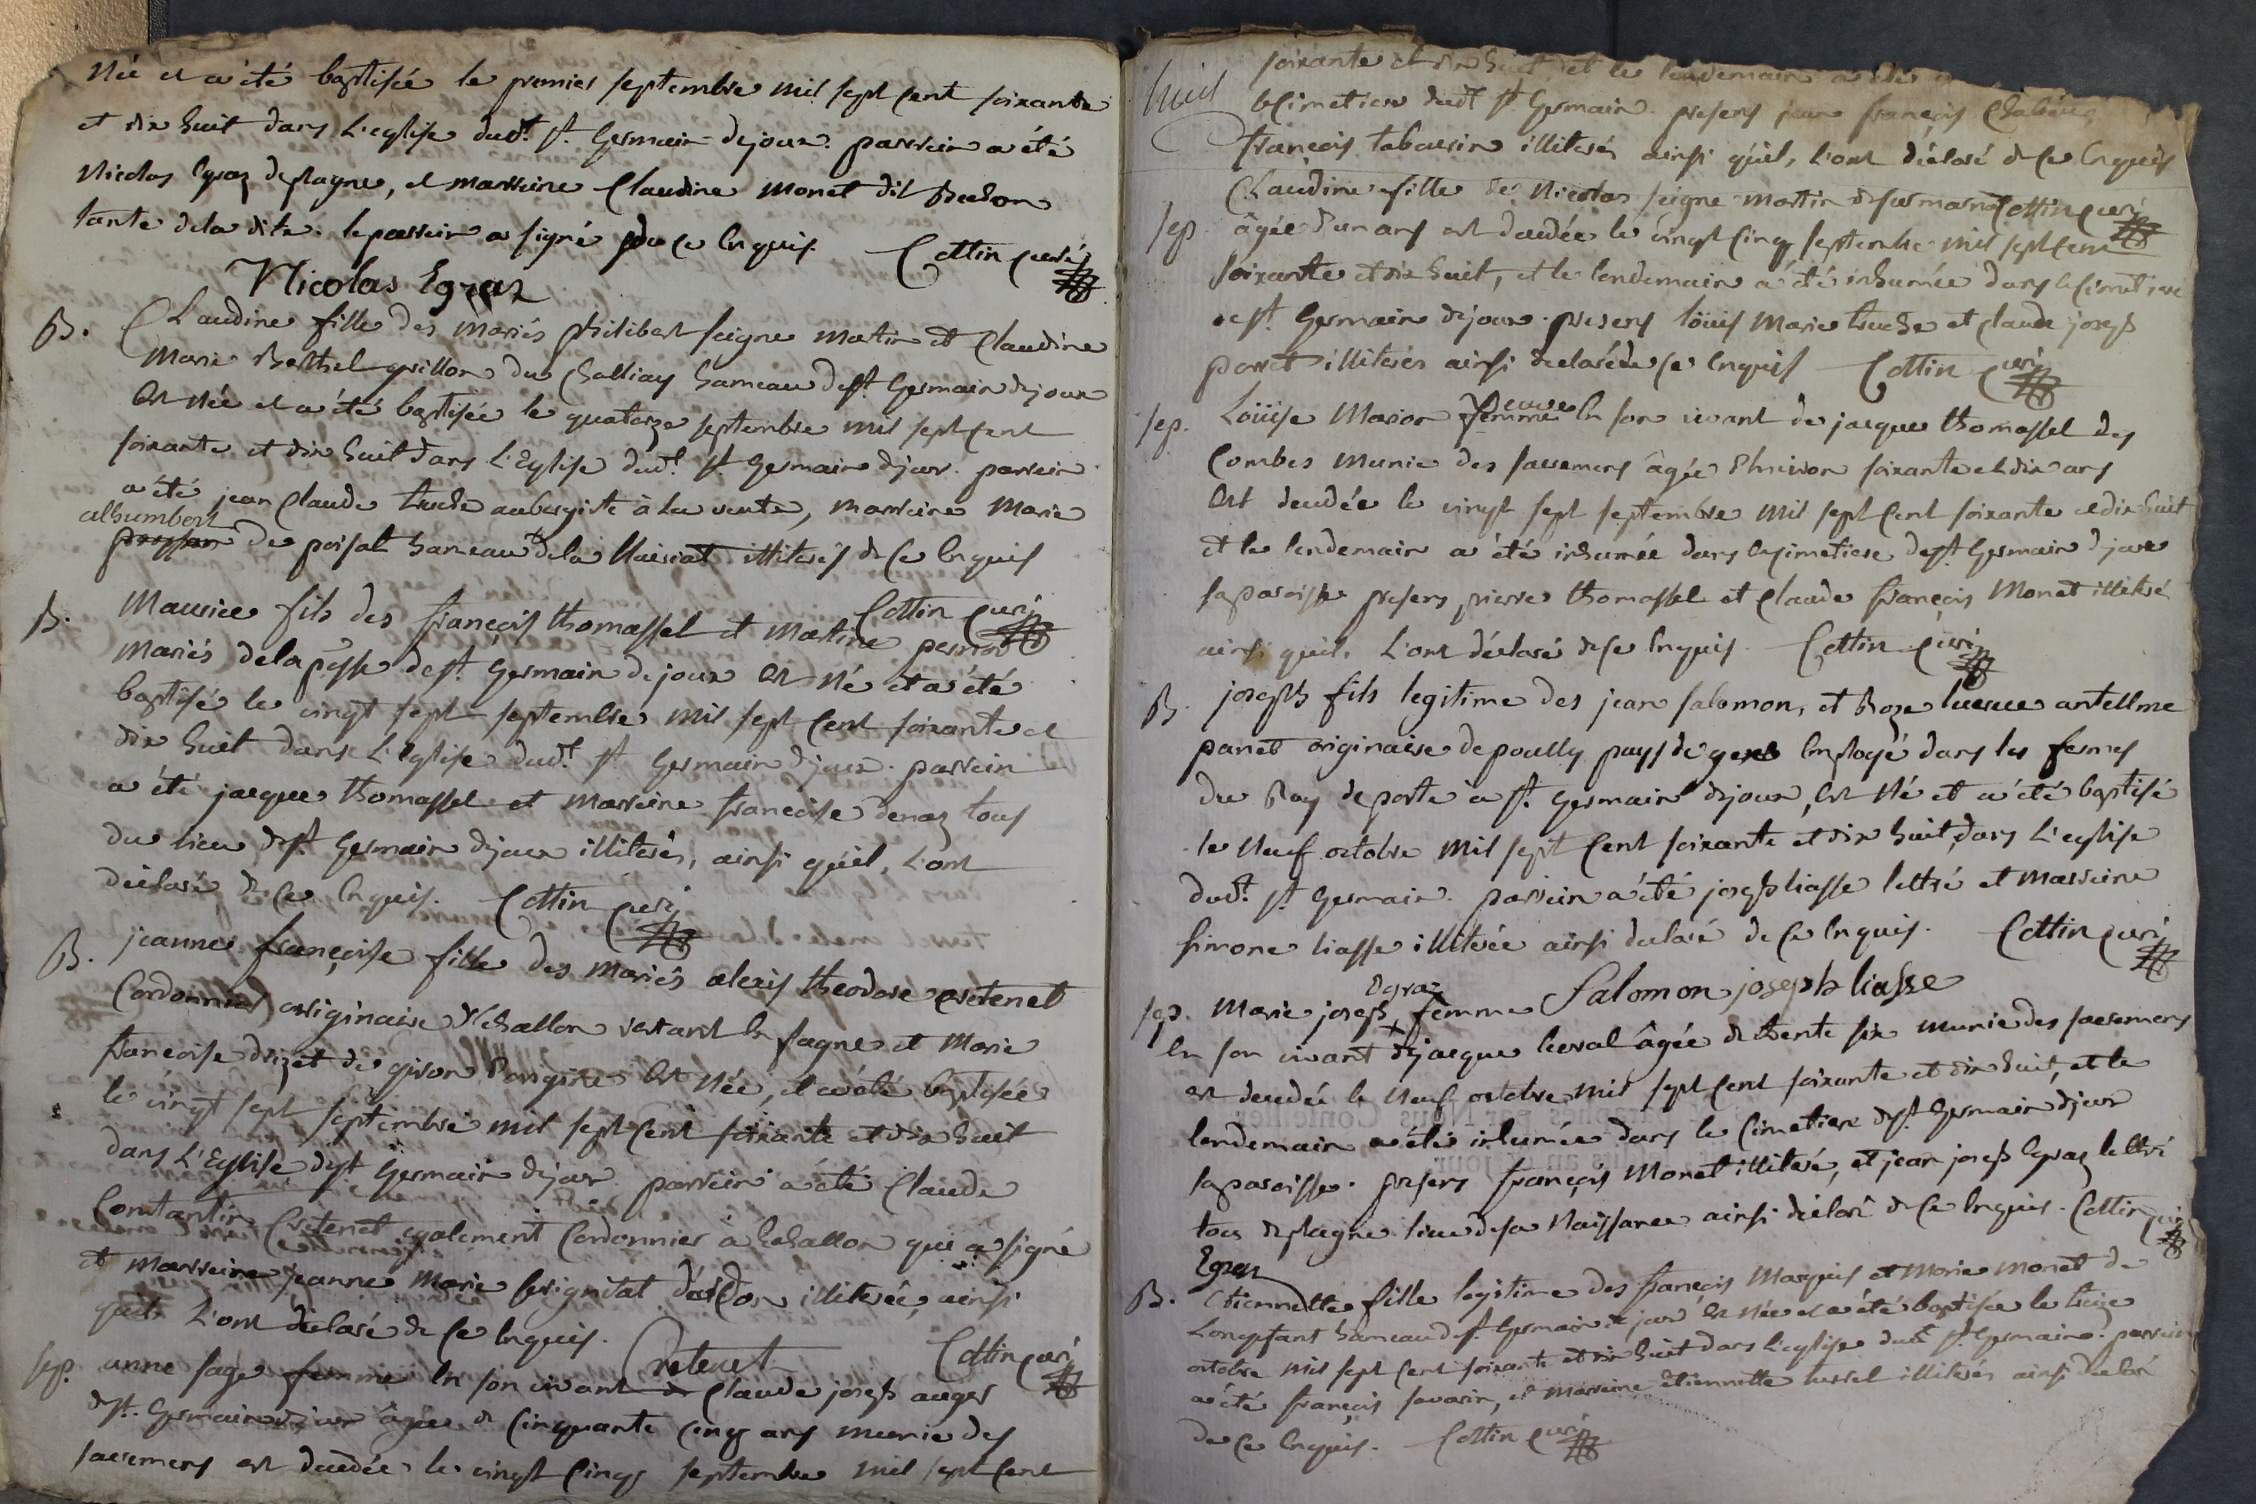 née et a été baptisée le premier septembre mil sept cent soixante
et dix huit dans l'eglise dudt. st. Germain dejoux. parrein a été
Nicolas Egraz deplagne, et marreine Claudine monet dit
tante dela dite. le parrein a signé de ce enquis. Cottin curé
Nicolas Egraz
B. Claudine fille des mariés philibert seigne martin et Claudine
marie Berthet grillon du Challiay hameau de st. Germain dejoux
est née et a été baptisée le quatorze septembre mil sept cent
soixante et dix huit dans l'Eglise dudt. st Germain dejoux. parrein
a été jean Claude tuche aubergiste à la vente, marreine marie
alhumbert
de poisat hameau dela illiterés de ce enquis
Cottin curé
B. Maurice fils des françois thomasset et martine
mariés dela psse de st. Germain dejoux est né et a été
baptisé le vingt sept septembre mil sept cent soixante et
dix huit dans l'Eglise dudt. st Germain dejoux. parrein
a été jacque thomasset et marreine francoise denaz tous
du lieu de st. Germain dejoux illiterés, ainsi qu'il, l'ont
déclaré de ce enquis. Cottin curé
B. jeanne françoise fille des mariés alexis theodore cretenet
Cordonnier originaire d'Echallon restant en sagne et Marie
francoise de giron est née, et a été baptisée
le vingt sept septembre mil sept cent soixante et dix huit
dans l'Eglise de st. Germain dejoux parrein a été Claude
Constantin Cretenet egalement Cordonnier à Echallon qui a signé
et marreine jeanne marie illiterée, ainsi
qu'il l'ont déclaré de ce enquis. Cretenet Cottin curé
sep. anne sage femme en son vivant de Claude joseph auger
de st. Germain dejoux âgée de cinquante cinq ans munie des
sacremens est decedée le vingt cinq septembre mil sept cent
huit
soixante et dix huit, et le lendemain a été
le cimetiere dudt st Germain. presens jean françois
françois tabourin illiterés ainsi qu'il, l'ont déclaré de ce enquis
Cottin curé
sep. Claudine fille de Nicolas seigne martin
âgée d'un ans est decedée le vingt cinq septembre mil sept cent
soixante et dix huit, et le lendemain a été inhumée dans le cimetiere
de st. Germain dejoux. presens loüis marie tuche et claude joseph
ponet illiterés ainsi declaré de ce enquis Cottin curé
sep. Loüise Maron femme veuve en son vivant de jacque thomasset des
Combes munie des sacremens âgée d'environ soixante et dix ans
est decedée le vingt sept septembre mil sept cent soixante et dix huit
et le lendemain a été inhumée dans le cimetiere de st. Germain dejoux
sa paroisse presens, pierre thomasset et Claude françois Monet illiteré
ainsi qu'il, l'ont déclaré de ce enquis. Cottin curé
B. joseph fils legitime des jean salomon, et Roze lucrece antellme
panet originaire de poully pays de gex employé dans les fermes
du Roy de poste a st. Germain dejoux, est né et a été baptisé
le neuf octobre mil sept cent soixante et dix huit, dans l'eglise
dudt. st Germain. parrein a été joseph liasse lettré et marreine
simone liasse illiterée ainsi declaré de ce enquis. Cottin curé
Salomon joseph liasse
sep. Marie joseph Egraz femme
en son vivant de jacque âgée de trente six munie des sacremens
est decedée le neuf octobre mil sept cent soixante et dix huit, et le
lendemain a été inhumée dans le cimetiere de st. Germain dejoux
sa paroisse. presens françois Monet illiteré, et jean joseph Egraz lettré
tous de plagne lieu de sa naissance ainsi déclaré de ce enquis. Cottin curé
Egraz
B. Etiennette fille legitime des françois Marquis et Marie monet de
Longefant hameau de st. Germain de joux est née et a été baptisée le treize
octobre mil sept cent soixante et dix huit dans l'eglise dudt st. Germain. parrein
a été françois savarin, et marreine Etiennette tersel illiterés ainsi declaré
de ce enquis. Cottin curé